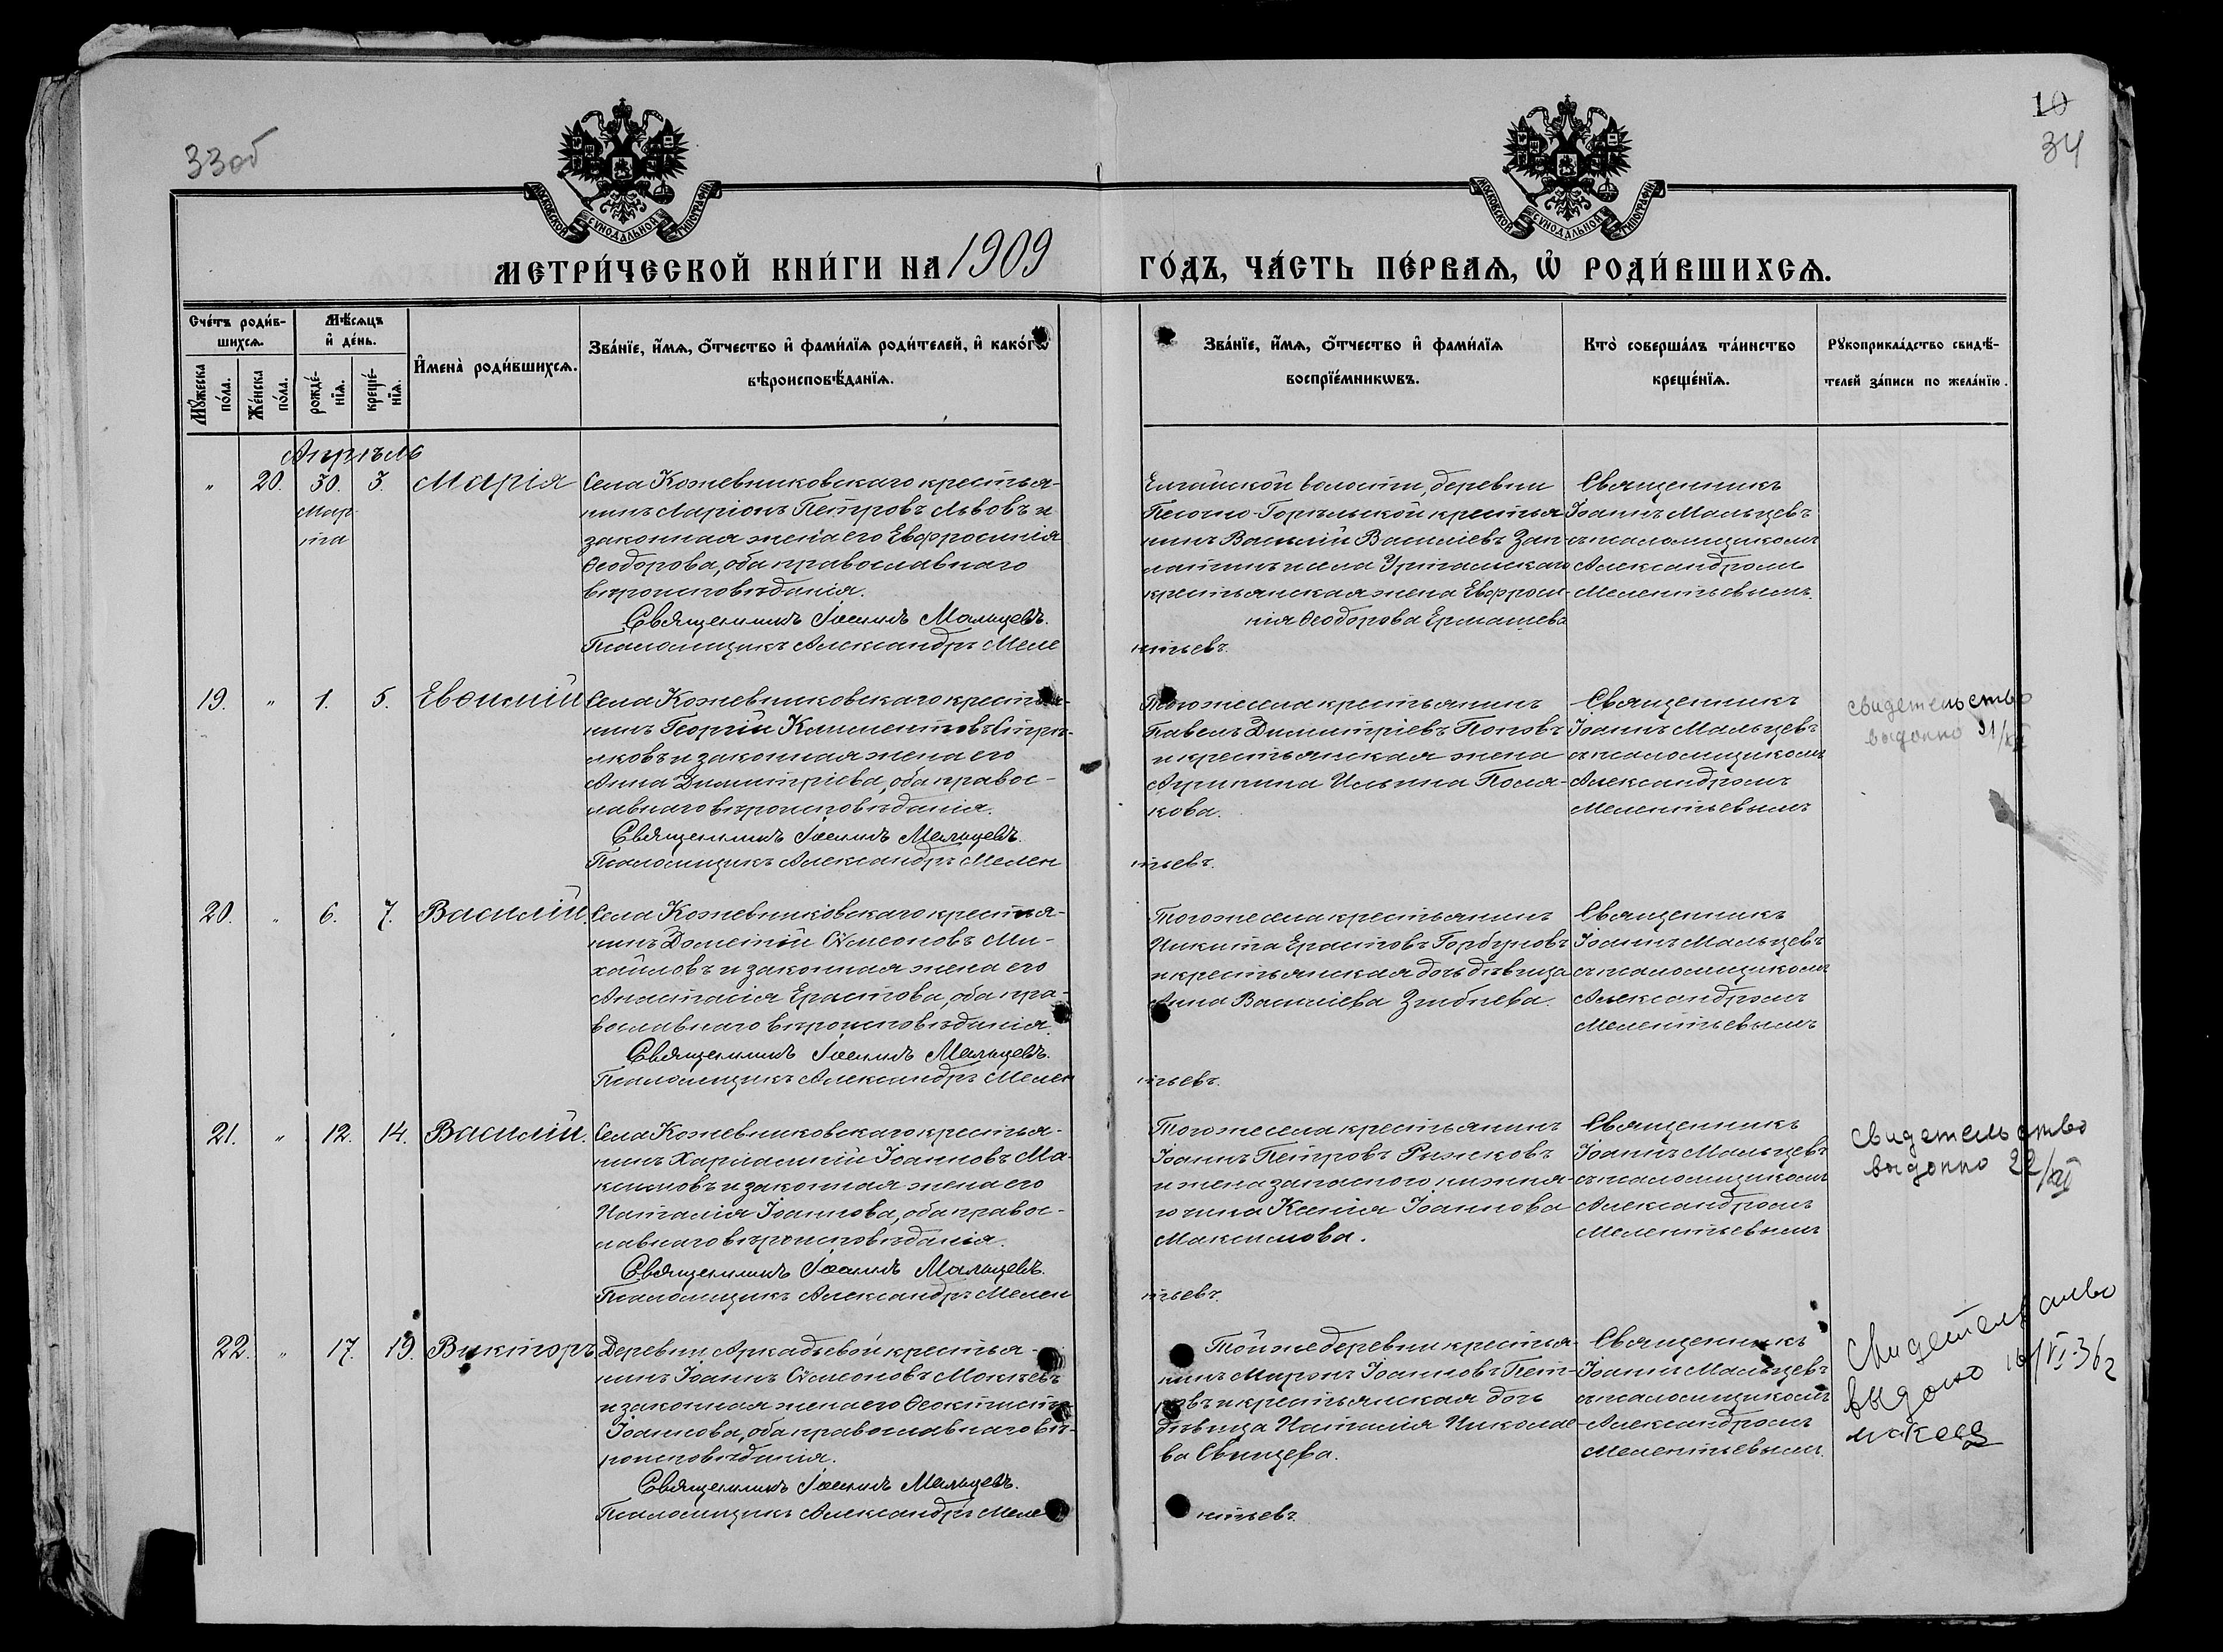 33об
10
34
МОСКОВСКОЙ СѴНОДАЛЬНОЙ ТИПОГРАФІИ
МОСКОВСКОЙ СѴНОДАЛЬНОЙ ТИПОГРАФІИ
МЕТРИ́ЧЕСКОЙ КНИ́ГИ НА 1909 ГО́ДЪ, ЧА́СТЬ ПЕ́РВАѦ, Ѽ РОДИ́ВШИХСѦ.
Сче́тъ роди́в-
шихсѧ.
Мꙋ́жеска по́ла.
Же́нска по́ла.
Мѣ́сѧцъ
и҆ де́нь.
рожде́-
нїѧ.
креще́-
нїѧ.
И҆мена̀ роди́вшихсѧ.
Зва́нїе, и҆́мѧ, ѻ҆́тчество и҆ фами́лїѧ роди́телей, и҆ како́гѡ
вѣроисповѣ́данїѧ.
Зва́нїе, и҆́мѧ, ѻ҆́тчество и҆ фами́лїѧ
воспрїе́мникѡвъ.
Кто̀ соверша́лъ та́инство
креще́нїѧ.
Рꙋкоприкла́дство свидѣ́-
телей за́писи по жела́нїю.
Апрѣль
" 20. 30. 3. Марія
Мар
та
Села Кожевниковскаго крестья-
нинъ Ларіонъ Петровъ Львовъ и
законная жена его Евфросинія
Ѳеодорова, оба православнаго
вѣроисповѣданія.
Священникъ Іоаннъ Мальцевъ.
Псаломщикъ Александръ Меле
нтьевъ.
Елгайской волости, деревни
Песочно-Горѣльской крестья
нинъ Василій Василіевъ Зап
латинъ и села Уртамскаго
крестьянская жена Евфроси-
нія Ѳеодорова Ермашева
Священникъ
Іоаннъ Мальцевъ
съ псаломщикомъ
Александромъ
Мелентьевымъ.
19. " 1. 5. Евѳимій
Села Кожевниковскаго крестья-
нинъ Георгій Климентовъ Стрѣ-
лковъ и законная жена его
Анна Димитріева, оба правос-
лавнаго вѣроисповѣданія.
Священникъ Іоаннъ Мальцевъ.
Псаломщикъ Александръ Мелен
тьевъ.
Того же села крестьянинъ
Павелъ Димитріевъ Поповъ
и крестьянская жена
Агрипина Ильина Поля-
кова.
Священникъ
Іоаннъ Мальцевъ
съ псаломщикомъ
Александромъ
Мелентьевымъ
свидетельство
выдонно
20. " 6. 7. Василій.
Села Кожевниковскаго крестья-
нинъ Дометій Сѵмеоновъ Ми-
хайловъ и законная жена его
Анастасія Ерастова, оба пра-
вославнаго вѣроисповѣданія.
Священникъ Іоаннъ Мальцевъ.
Псаломщикъ Александръ Мелен
тьевъ.
Того же села крестьянинъ
Никита Ерастовъ Горбуновъ
и крестьянская дочь дѣвица
Анна Василіева Зыбнева.
Священникъ
Іоаннъ Мальцевъ
съ псаломщикомъ
Александромъ
Мелентьевымъ
21. " 12. 14. Василій.
Села Кожевниковскаго крестья-
нинъ Харлампій Іоанновъ Ма-
ксимовъ и законная жена его
Наталія Іоаннова, оба правос-
лавнаго вѣроисповѣданія.
Священникъ Іоаннъ Мальцевъ.
Псаломщикъ Александръ Мелен
тьевъ.
Того же села крестьянинъ
Іоаннъ Петровъ Рыжковъ
и жена запаснаго нижня-
го чина Ксенія Іоаннова
Максимова.
Священникъ
Іоаннъ Мальцевъ
съ псаломщикомъ
Александромъ
Мелентьевымъ
свидетельство
выдонно 22/XII
22. " 17. 19. Викторъ
Деревни Аркадьевой крестья-
нинъ Іоаннъ Сѵмеоновъ Мокѣевъ
и законная жена его Ѳеоктиста
Іоаннова, оба православнаго вѣ-
роисповѣданія.
Священникъ Іоаннъ Мальцевъ.
Псаломщикъ Александръ Меле
нтьевъ.
Той же деревни крестья-
нинъ Миронъ Іоанновъ Пет-
ровъ и крестьянская дочь
дѣвица Наталія Николае-
ва Свинцева.
Священникъ
Іоаннъ Мальцевъ
съ псаломщикомъ
Александромъ
Мелентьевымъ.
Свидетельство
выдоно 16/VI-36г